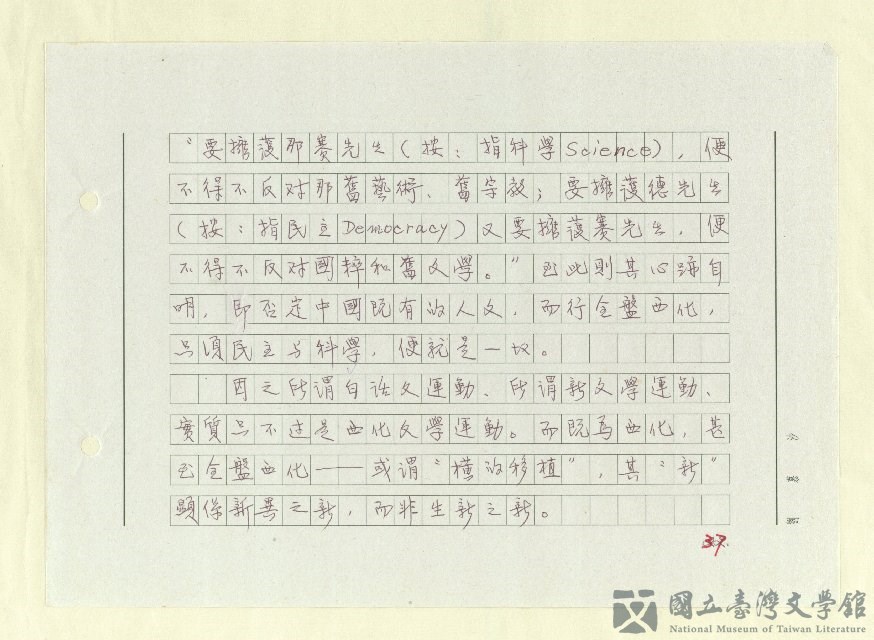 “要擁護那賽先生（按：指科學Science），便
不得不反对那舊藝術、舊宗教；要擁護德先生
（按：指民主Democracy）又要擁護賽先生，便
不得不反对國粹和舊文學。”至此則其心跡自
明，即否定中國既有的人文，而行全盤西化，
只須民主与科學，便就是一切。
因之所謂白话文運動、所謂新文學運動、
實質只不过是西化文學運動。而既為西化，甚
至全盤西化——或謂“横的移植”，其“新”
顯係新異之新，而非生新之新。
37.
國立臺灣文學館
National Museum of Taiwan Literature